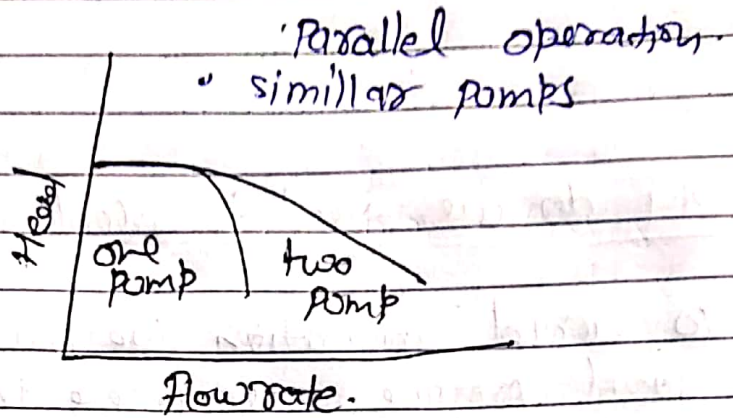 Parallel operation.
• simillar pomps
Head
one
pomp
two
pomp
flow rate.